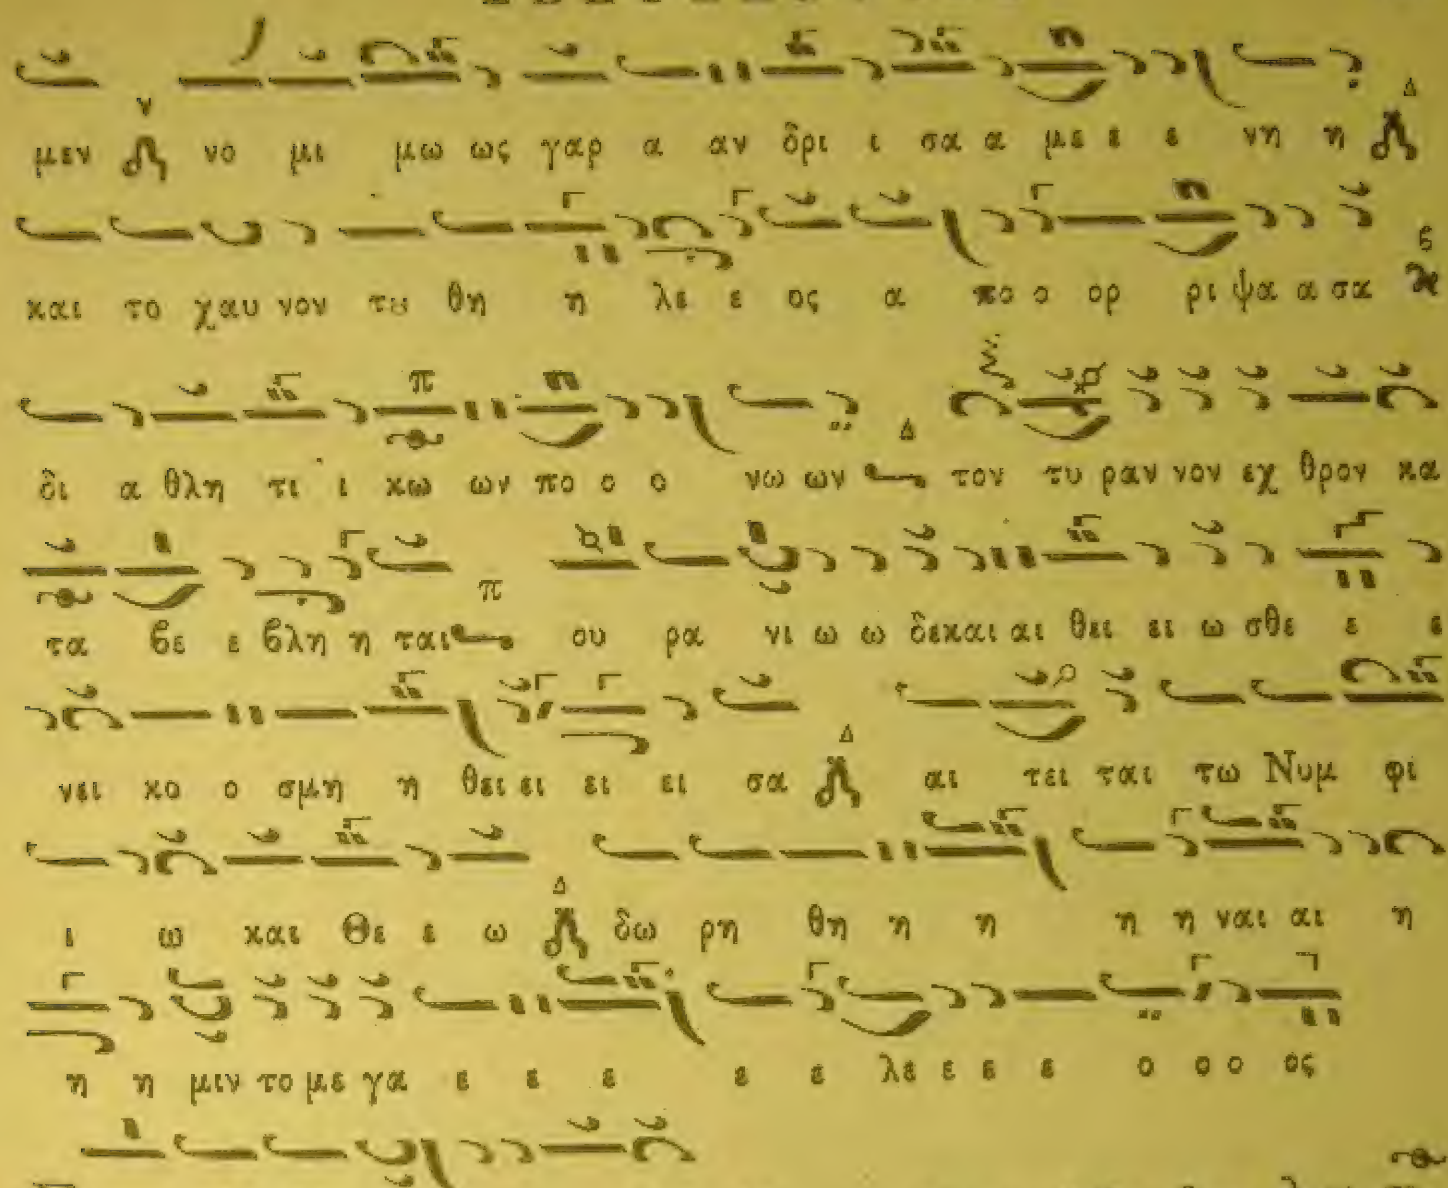 μεν νο μι μω ως γαρ α αν δρι ι σα α με ε ε νη η
και το χαυ νον τȣ θη η λε ε ος α πο ο ορ ρι ψα α σα
δι α θλη τι ι κω ων πο ο ο νω ων τον τυ ραν νον εχ θρον κα
τα βε ε βλη η ται ου ρα νι ω ω δε και αι θει ει ω σθε ε ε
νει κο ο σμη η θει ει ει ει σα αι τει ται τω Νυμ φι
ι ω και Θε ε ω δω ρη θη η η η η ναι αι η
η η μιν το με γα ε ε ε ε ε λε ε ε ε ο ο ο ος